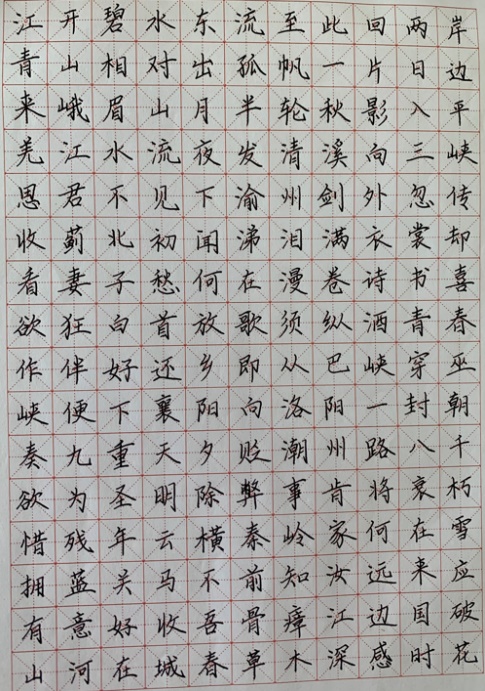 江开碧水东流至此回两岸
青山相对出孤帆一片日边
来峨眉山月半轮秋影入平
羌江水流夜发清溪向三峡
思君不见下渝州剑外忽传
收蓟北初闻涕泪满衣裳却
看妻子愁何在漫卷诗书喜
欲狂白首放歌须纵酒青春
作伴好还乡即从巴峡穿巫
峡便下襄阳向洛阳一封朝
奏九重天夕贬潮州路八千
欲为圣明除弊事肯将衰朽
惜残年云横秦岭家何在雪
拥蓝关马不前知汝远来应
有意好收吾骨瘴江边国破
山河在城春草木深感时花